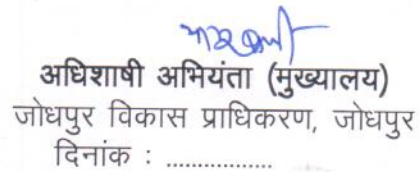 अधिशाषी अभियंता (मुख्यालय)
जोधपुर विकास प्राधिकरण, जोधपुर
दिनांक : ................